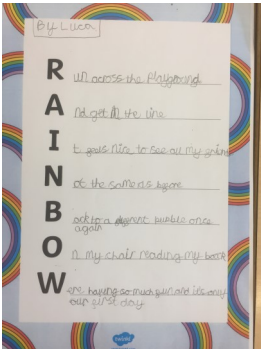 By Luca
Run across the playground
And get in the line
It feels nice to see all my friends
Not the same as before
Back to a different bubble once
again
On my chair reading my book
Were having so much fun and it's only
our first day
twinkl